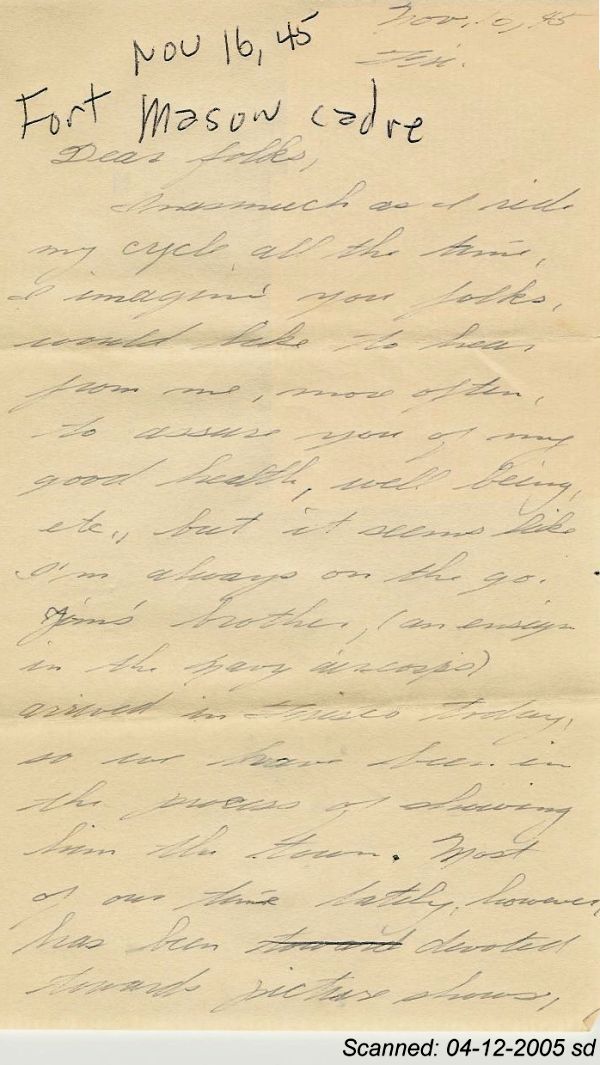 Nov. 16, 45
Nov 16, 45
Fri.
Fort Mason cadre
Dear folks,
Inasmuch as I ride
my cycle all the time,
I imagine you folks,
would like to hear
from me, more often,
to assure you of my
good health, well being,
etc., but it seems like
I'm always on the go.
Jim's brother, (an ensign
in the navy aircorps)
arrived in Frisco today,
so we have been in
the process of showing
him the town. Most
of our time lately, however,
has been toward devoted
towards picture shows,
Scanned: 04-12-2005 sd